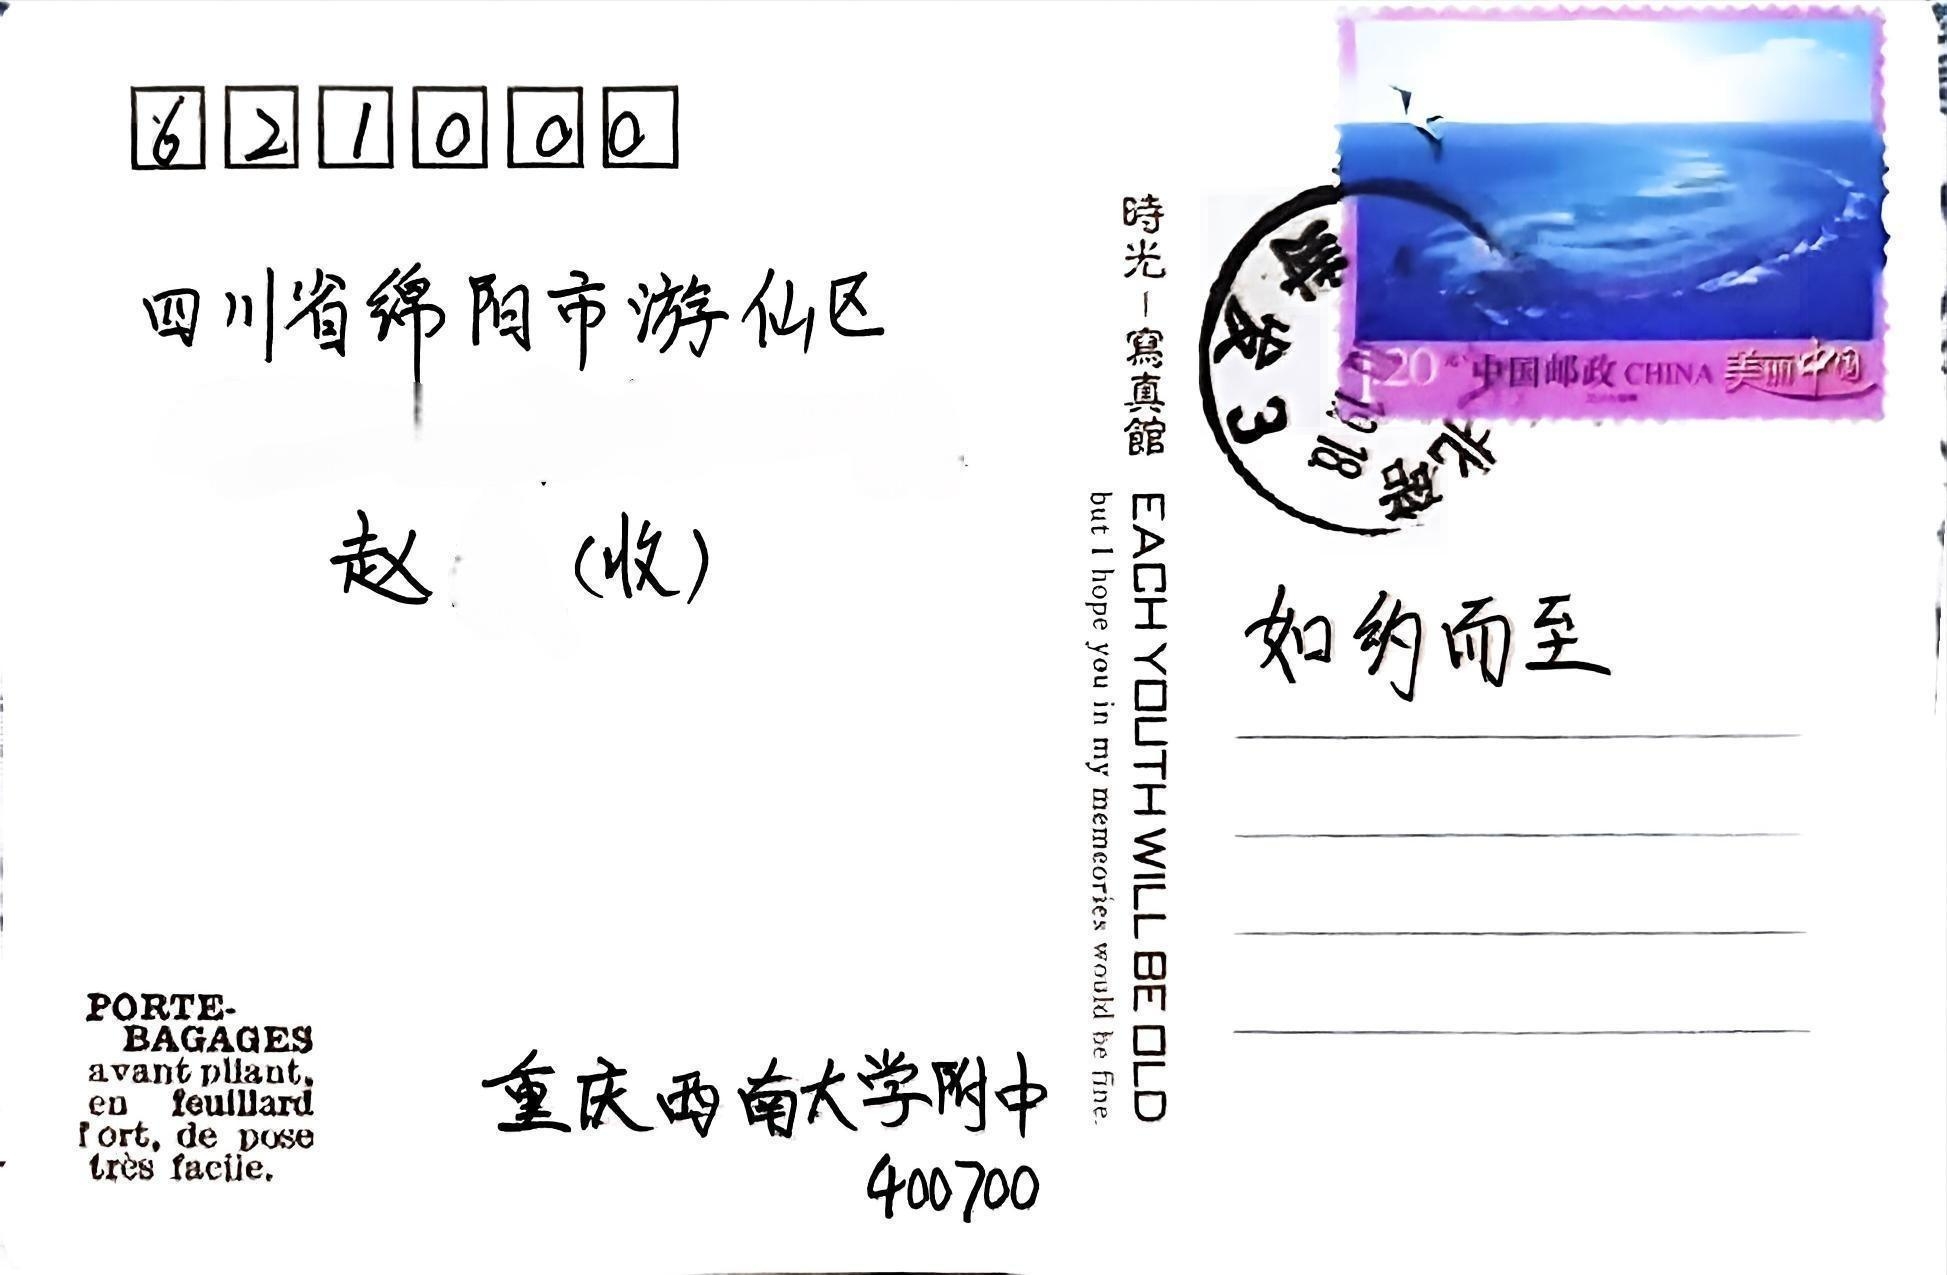 621000
四川省绵阳市游仙区
赵 (收)
PORTE-
BAGAGES
avant pliant,
en feuillard
fort, de pose
très facile.
重庆西南大学附中
400700
時光－寫真館
EACH YOUTH WILL BE OLD
but I hope you in my memeories would be fine.
1.20元 中国邮政 CHINA 美丽中国
北碚
3
18
如约而至